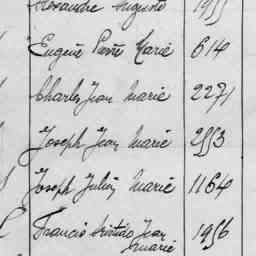 Alexandre Auguste 1955
Eugene Pierre Marie 614
Charles Jean Marie 2271
Joseph Jean Marie 2553
Joseph Julien Marie 1164
Francis Aristide Jean 1956
Marie